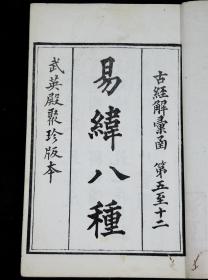 古經解彙函 第五至十二
易緯八種
武英殿聚珍版本